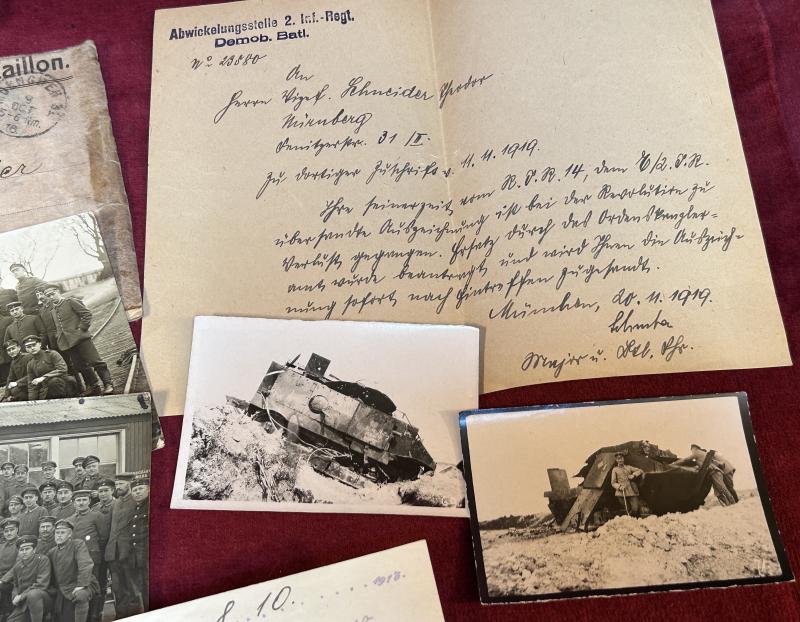 Abwickelungsstelle 2. Inf.-Regt.
Demob. Batl.
No 23880
An
Herrn Vizef. Schneider Theodor
Nürnberg
Fenitzerstr. 31 /II.
Zu dortiger Zuschrift v. 11.11.1919.
Ihre seinerzeit vom R.I.R. 14, dem E/2. I.R.
übersandte Auszeichnung ist bei der Revolution zu
Verlust gegangen. Ersatz durch das Ordenskanzler-
amt wurde beantragt und wird Ihnen die Auszeich-
nung sofort nach Eintreffen zugesandt.
München, 20.11.1919.
Major u. Btl. Fhr.
aillon.
10. 1918.